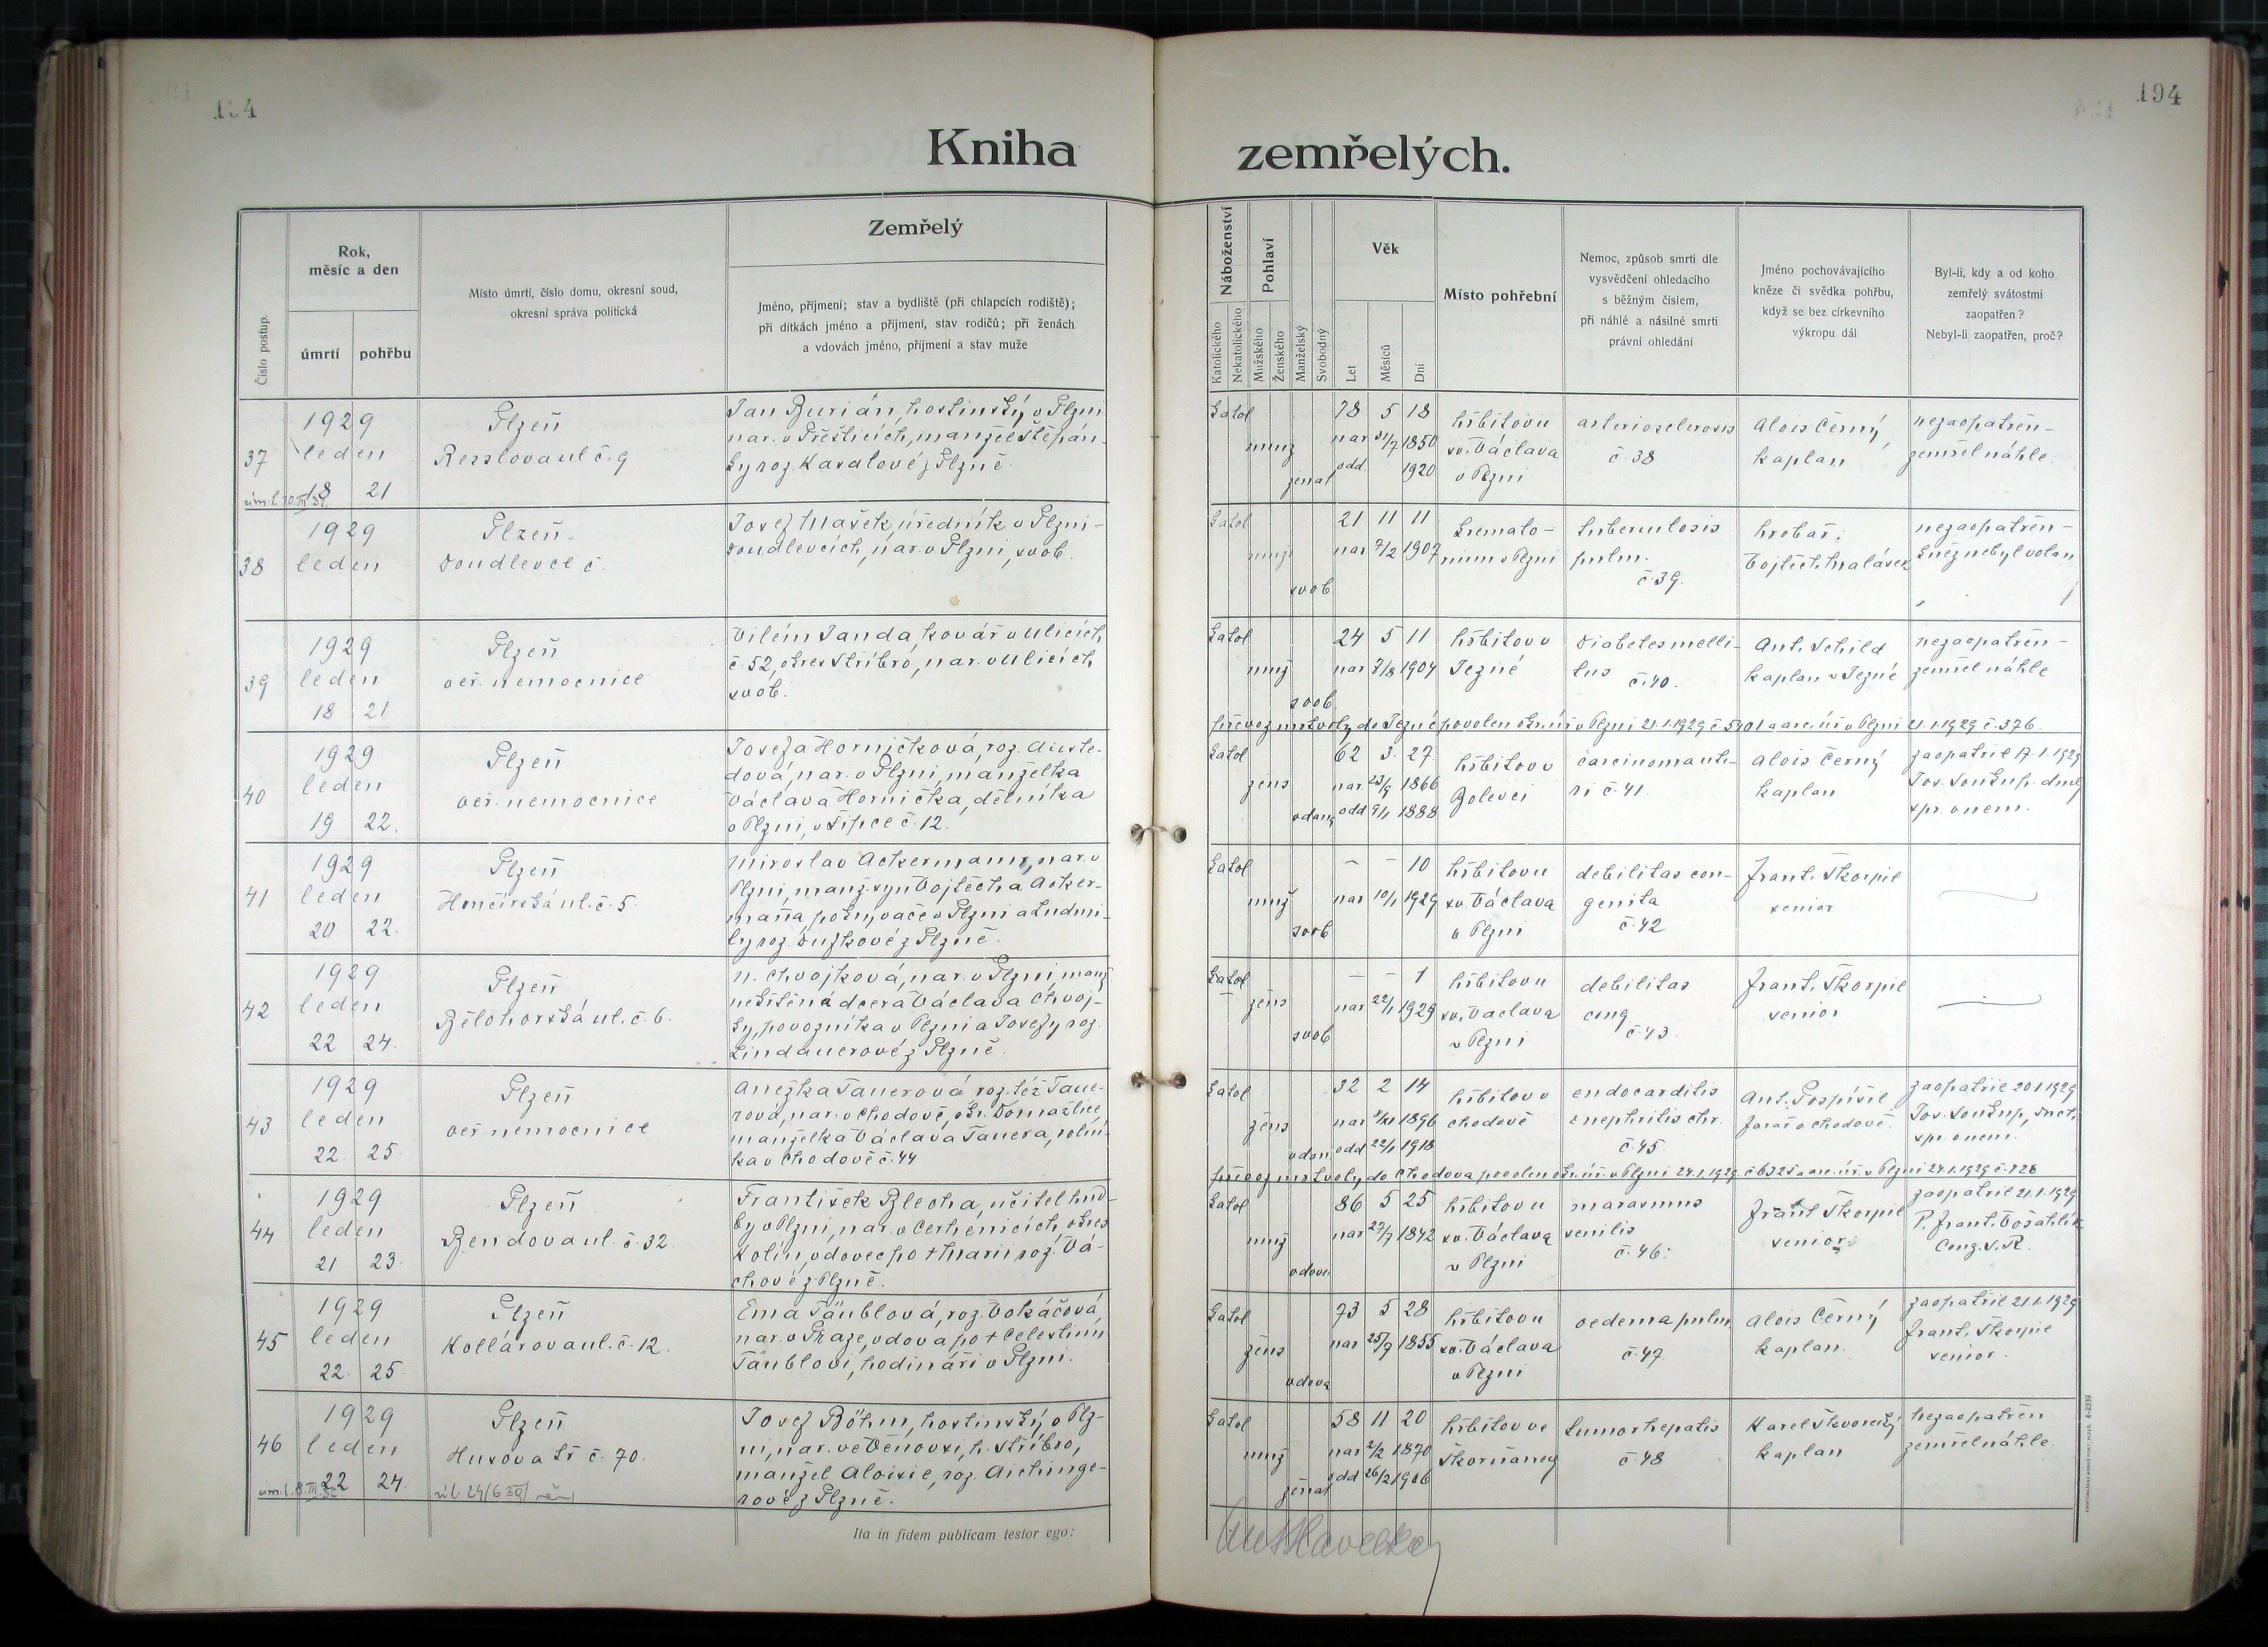 194
194
Kniha zemřelých.
Číslo postup.
Rok, měsíc a den
úmrtí
pohřbu
Místo úmrtí, číslo domu, okresní soud,
okresní správa politická
Zemřelý
Jméno, příjmení; stav a bydliště (při chlapcích rodiště);
při dítkách jméno a příjmení, stav rodičů; při ženách
a vdovách jméno, příjmení a stav muže
Náboženství
Katolického
Nekatolického
Pohlaví
Mužského
Ženského
Manželský
Svobodný
Věk
Let
Měsíců
Dní
Místo pohřební
Nemoc, způsob smrti dle
vysvědčení ohledacího
s běžným číslem,
při náhlé a násilné smrti
právní ohledání
Jméno pochovávajícího
kněze či svědka pohřbu,
když se bez církevního
výkropu dál
Byl-li, kdy a od koho
zemřelý svátostmi
zaopatřen?
Nebyl-li zaopatřen, proč?
37
1929
leden
18 21
Plzeň
Resslova ul. č. 9
Jan Burián, hostinský v Plzni
nar. v Přešticích, manžel Štěpán-
ky roz. Kasalové z Plzně.
katol
muž
ženat
78 5 18
nar 31/7 1850
odd. 1920
hřbitov u
sv. Václava
v Plzni
arteriosclerosis
č. 38
Alois Černý,
kaplan
nezaopatřen -
zemřel náhle.
38
1929
leden
Plzeň -
Doudlevce č.
Josef Mašek, úředník v Plzni -
Doudlevcích, nar. v Plzni, svob.
katol
muž
svob
21 11 11
nar 7/2 1907
kremato-
rium v Plzni
tuberculosis
pulm.
č. 39.
hrobař:
Vojtěch Malásek
nezaopatřen -
kněz nebyl volan
39
1929
leden
18 21
Plzeň
veř. nemocnice
Vilém Janda, kovář v Ulicích
č. 52, okres Stříbro, nar. v Ulicích
svob.
katol
muž
svob
24 5 11
nar 7/8 1904
hřbitov v
Tezné
Diabetes melli-
tus
č. 40.
Ant. Schild
kaplan v Tezné
nezaopatřen -
zemřel náhle
převoz mrtvoly do Tezné povolen okr. úř. v Plzni 21.1.1929 č. 5401 a arc. úř. v Plzni 21.1.1929 č. 376.
40
1929
leden
19 22.
Plzeň
veř. nemocnice
Josefa Horničková, roz. Auste-
dová, nar. v Plzni, manželka
Václava Hornička, dělníka
v Plzni, v Šipce č. 12.
katol
žens
vdaná
62 3 27
nar 23/9 1866
odd 9/1 1888
hřbitov v
Bolevci
carcinom ute-
ri č. 41.
Alois Černý
kaplan
zaopatřil 17.1.1929
Jos. Soukup. duch
spr. v nem.
41
1929
leden
20 22.
Plzeň
Hrnčířská ul. č. 5.
Miroslav Ackermann, nar. v
Plzni, manž. syn Vojtěcha Acker-
manna v Plzni a Ludmi-
ly roz. z Plzně.
katol
muž
svob
- - 10
nar 10/1 1929
hřbitov u
sv. Václava
v Plzni
debilitas con-
genita
č. 42
Frant. Škorpil
senior
42
1929
leden
22 24.
Plzeň
Bělohorská ul. č. 6.
N. Chvojková, nar. v Plzni, manž
nekřtěná dcera Václava Chvoj-
ky, povozníka v Plzni a Josefy roz.
Lindauerové z Plzně.
katol
žens
svob
- - 1
nar 22/1 1929
hřbitov u
sv. Václava
v Plzni
debilitas
cong
č. 43.
Frant. Škorpil
senior
43
1929
leden
22 25.
Plzeň
veř. nemocnice
Anežka Tauerová roz. též Taue-
rová, nar. v Chodově, okr. Domažlice,
manželka Václava Tauera, rolní-
ka v Chodově č. 44
katol
žens
vdan
32 2 14
nar 1896
odd 22/1 1918
hřbitov v
Chodově
endocarditis
nephritis chr.
č. 45
Ant. Pospíšil
farář v Chodově.
zaopatřil 20.1.1929
Jos. Soukup, duch.
spr. v nem.
převoz mrtvoly do Chodova povolen okr. úř. v Plzni 24.1.1929 č. 6325 a arc. úř. v Plzni 24.1.1929 č. 428
44
1929
leden
21 23
Plzeň
Bendova ul. č. 32.
František Blecha, učitel hud-
by v Plzni, nar. v Cerhenicích, okres
Kolín, vdovec po + Marii roz. Vá-
chové z Plzně.
katol
muž
vdovec
86 5 25
nar 27/7 1842
hřbitov u
sv. Václava
v Plzni
marasmus
senilis
č. 46.
Frant Škorpil
senior
zaopatřil 21.1.1929
P. Frant.
Cong. S. R.
45
1929
leden
22 25
Plzeň
Kollárova ul. č. 12.
Ema Täublová, roz. Vokáčová,
nar. v Praze, vdova po + Celestinu
Täublovi, hodináři v Plzni.
katol
žens
vdova
73 5 28
nar 25/7 1855
hřbitov u
sv. Václava
v Plzni
oedema pulm
č. 47.
Alois Černý
kaplan.
zaopatřil 21.1.1929
Frant. Škorpil
senior.
46
1929
leden
22 24.
Plzeň
Husova tř. č. 70.
Josef Böhm, hostinský v Plz-
ni, nar. ve h. Stříbro,
manžel Aloisie, roz. Aichinge-
rové z Plzně.
katol
muž
ženat
58 11 20
nar 2/2 1870
odd 26/2 1906
hřbitov ve
Škvrňanech
tumor hepatis
č. 48
Karel Škvorecký
kaplan
nezaopatřen
zemřel náhle.
Ita in fidem publicam testor ego:
Ant Havelka